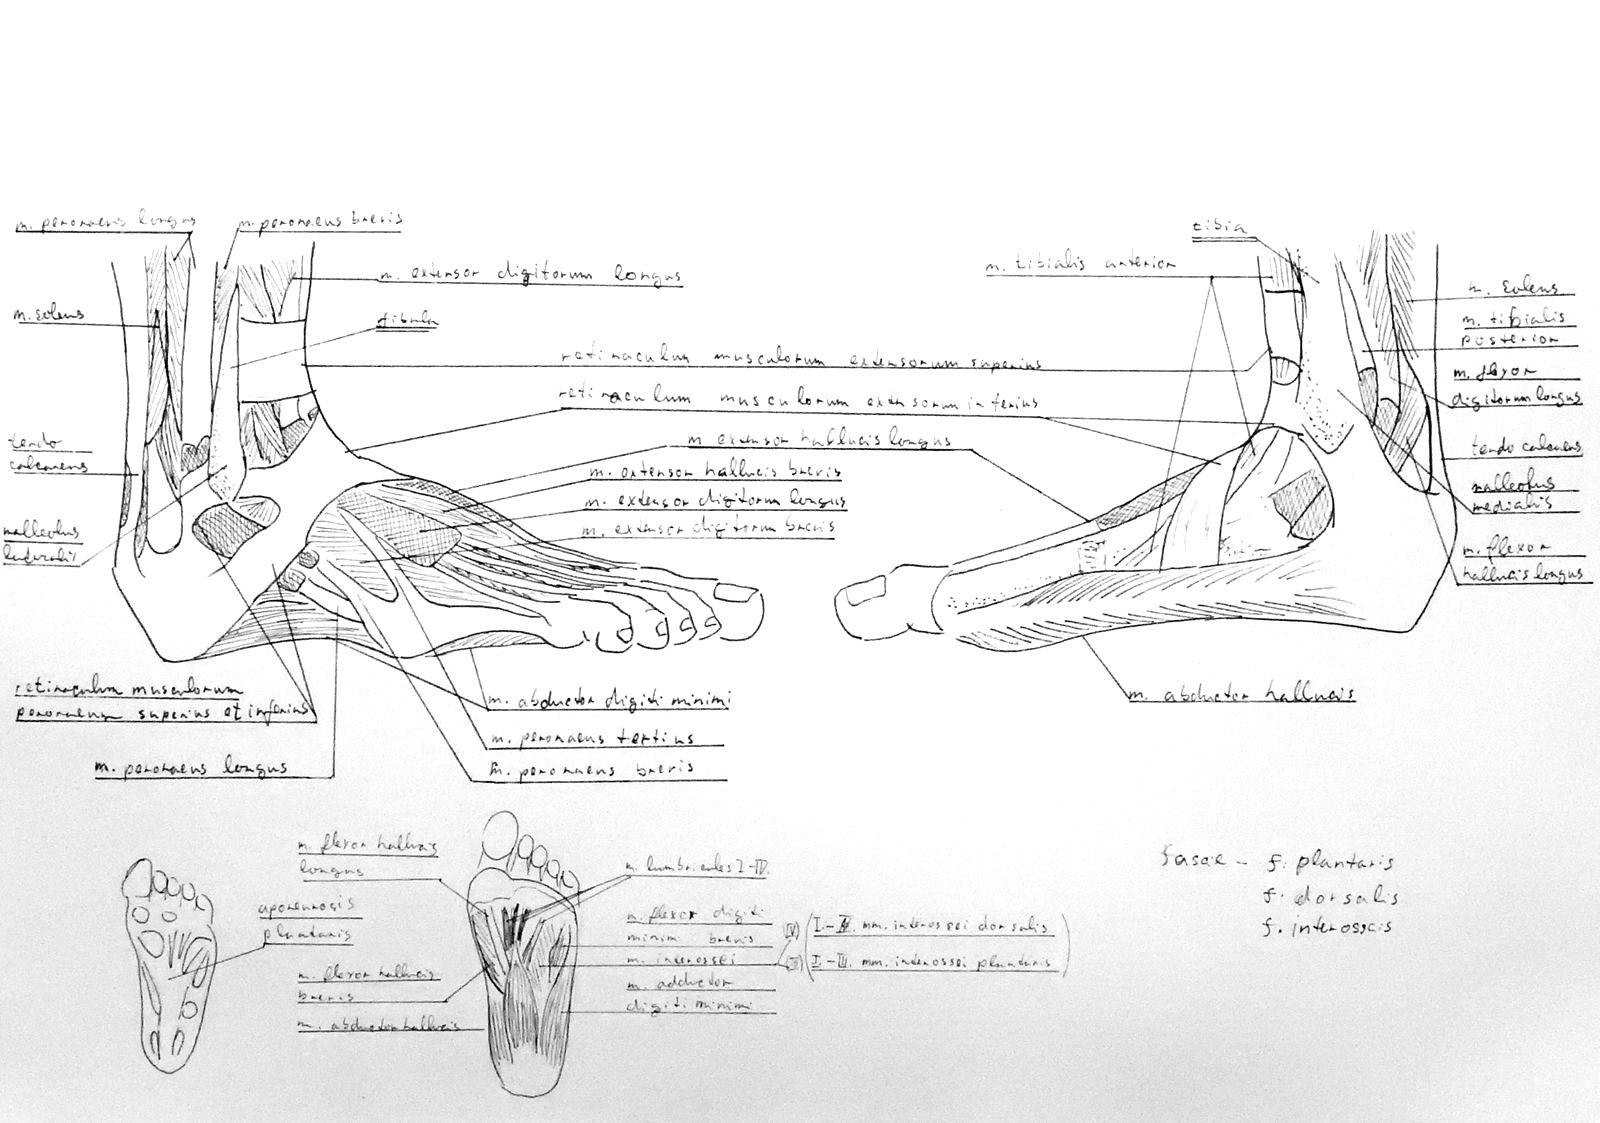 m. peronaeus longus
m. peronaeus brevis
m. extensor digitorum longus
m. soleus
fibula
retinaculum musculorum extensorum superius
retinaculum musculorum extensorum inferius
tendo
calcaneus
m extensor hallucis longus
m. extensor hallucis brevis
m. extensor digitorum longus
m. extensor digitorum brevis
malleolus
lateralis
retinaculum musculorum
peronaeum superius et inferius
m. peronaeus longus
m. abductor digiti minimi
m. peronaeus tertius
m. peronaeus brevis
tibia
m. tibialis anterior
m. soleus
m. tibialis
posterior
m. flexor
digitorum longus
tendo calcaneus
malleolus
medialis
m. flexor
hallucis longus
m. abductor hallucis
m. flexor hallucis
longus
aponeurosis
plantaris
m. flexor hallucis
brevis
m. abductor hallucis
m. lumbricales I-IV.
m. flexor digiti
minimi brevis
m. interossei
m. adductor
digiti minimi
(IV) (I.-IV. mm. interossei dorsalis
(III) I-III. mm. interossei plantaris)
fascie - f. plantaris
f. dorsalis
f. interosseis